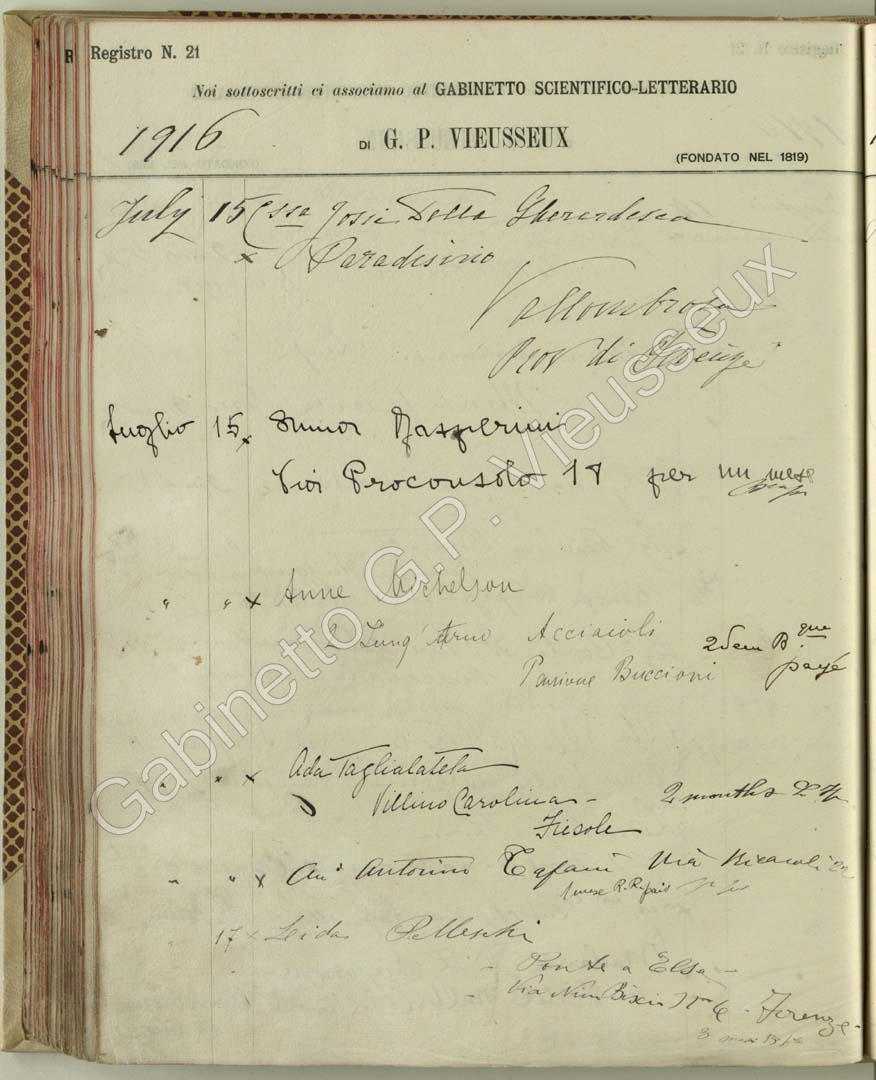 Registro N. 21
Noi sottoscritti ci associamo al GABINETTO SCIENTIFICO-LETTERARIO
1916
DI G. P. VIEUSSEUX
(FONDATO NEL 1819)
July 15 Cssa Josie Della Gherardesca
x Paradisino
Vallombrosa
Prov di Firenze
Luglio 15 x Gasperini
Via Proconsolo 18 per un mese
" " x Anne Michelson
2 Lung' Arno Acciaioli
2 dem B.que
Pensione Buccioni payé
" " x Ada Taglialatela
Villino Carolina – 2 months
Fiesole
" " x Antonino Tafani Via Ricasoli
1 mese
" 17 x Leida Pelleschi
– Ponte a Elsa –
– Via Nino Bixio No 6 – Firenze –
3
Gabinetto G.P. Vieusseux